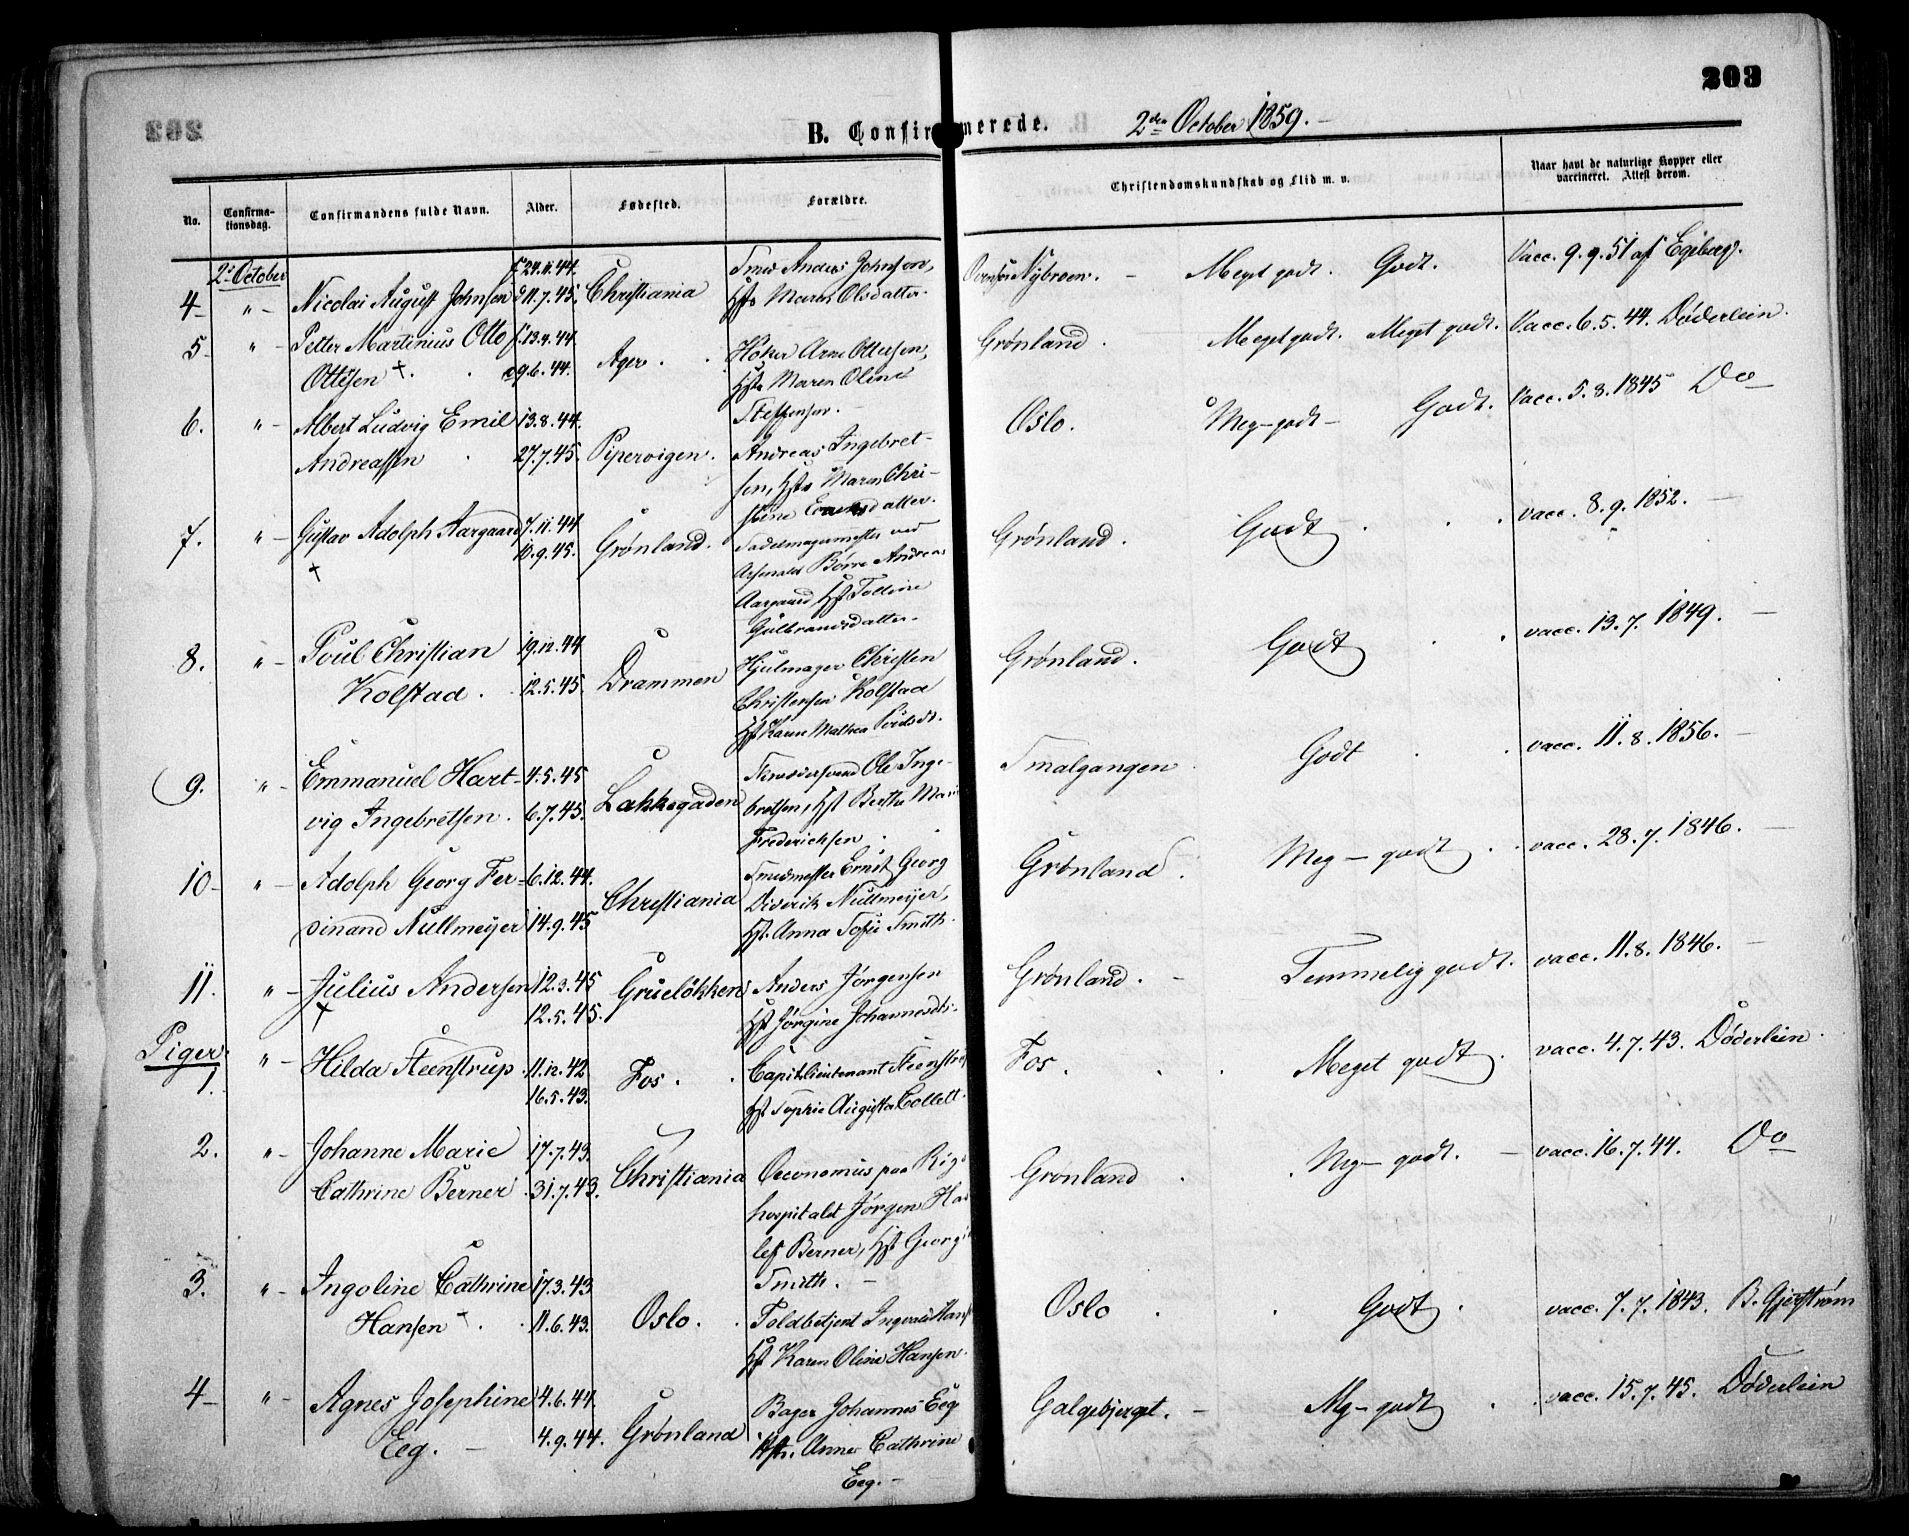 203
B. Confirmerede. 2den October 1859.
No. Confirma-tionsdag. Confirmandens fulde Navn. Alder. Fødested. Forældre. Christendomskundskab og Flid m. v. Naar havt de naturlige Kopper eller vaccineret. Attest derom.
2. October
4 " Nicolai August Johnsen f 24.11.44. d 11.7.45. Christiania Smed Anders Johnsen,
Hst. Maren Olsdatter. Nybroen. Meget godt. Godt. Vacc. 9.9.51 af Egeberg.
5 " Petter Martinius Otto f. 13.4.44
Ottesen +. d 9.6.44. Ager. Høker Arne Ottersen,
Hst. Maren Oline
Steffensen. Grønland. Meget godt. Meget godt. Vacc. 6.5.44. Døderlein.
6. " Albert Ludvig Emil 13.8.44.
Andreassen 27.7.45. Pipervigen. Andreas Ingebret-
sen, Hst. Maren Chri-
stine Evensdatter. Oslo. Meg-godt- Godt. Vacc. 5.8.1845 Do
7. " Gustav Adolph Aargaard 7.11.44
+ 10.9.45. Grønland. Sadelmagermester ved
Arsenalet Børre Andreas
Aargaard, Hst.
Gulbrandsdatter. Grønland. Godt vacc. 8.9.1852.
8. " Poul Christian 19.12.44
Kolstad. 12.5.45. Drammen Hjulmager Christen
Christensen Kolstad
Hst Karen Mathea Grønland. Godt vacc. 13.7.1849.
9. " Emmanuel Hart- 4.5.45
vig Ingebretsen. 6.7.45. Lakkegaden Ole Inge-
bretsen, Hst Berthe Marie
Frederichsen. Smalgangen Godt vacc. 11.8.1856.
10 " Adolph Georg Fer- 6.12.44.
dinand Nullmeyer 14.9.45 Christiania Smedmester Ernst Georg
Diderik Nullmeyer,
Hst. Anna Sofie Smith. Grønland. Meg- godt vacc. 28.7.1846.
11. " Julius Andersen 12.3.45
+ 12.5.45. Grueløkken Anders Jørgensen
Hst Jørgine Johannesdtr. Grønland. Temmelig godt. vacc. 11.8.1846.
Piger.
1. " Hilda Steenstrup. 11.12.42
16.5.43. Fos. Capitlieutenant Steenstrup
Hst Sophie Augusta Collett. Fos. Meget godt. vacc. 4.7.43. Døderlein.
2. " Johanne Marie 17.7.43.
Cathrine Berner. 31.7.43. Christiania Oeconomus paa Rigs
hospitalet Jørgen Had
lef Berner, Hst Georgi
Smith. Grønland Meg- godt. vacc. 16.7.44. Do
3. " Ingoline Cathrine 17.3.43
Hansen + 11.6.43. Oslo. Toldbetjent Ingvald Hans
Hst Karen Oline Hansen. Oslo Godt. vacc. 7.7.1843. B. Gjerstrøm
4 " Agnes Josephine 4.6.44.
Eeg. 4.9.44. Grønland Bager Johannes Eeg
Hst. Anne Cathrine
Eeg. Galgebjerget. Mg-godt vacc. 15.7.45. Døderlein